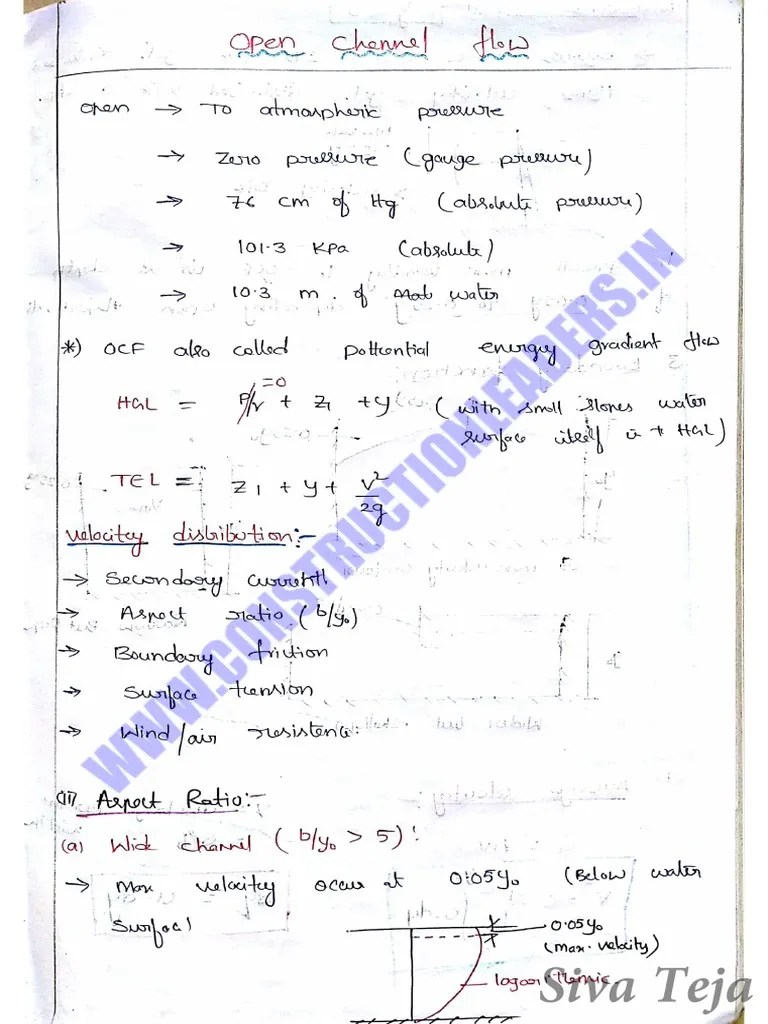 Open Channel flow
open → To atmospheric pressure
→ Zero pressure (gauge pressure)
→ 76 cm of Hg (absolute pressure)
→ 101.3 KPa (absolute)
→ 10.3 m. of water
*) OCF also called pottential energy gradient flow
HGL = P/γ + Z1 + y (with small slopes water
=0
surface itself is HGL)
TEL = Z1 + y + v²/2g
velocity distribution:-
→ Secondary current
→ Aspect ratio (b/y₀)
→ Boundary friction
→ Surface tension
→ Wind/air resistence.
Aspect Ratio:-
(a) Wide channel (b/y₀ > 5):
→ Max velocity occur at 0.05y₀ (Below water
surface)
0.05y₀
(max. velocity)
logarithmic
WWW.CONSTRUCTIONLEADERS.IN
Siva Teja